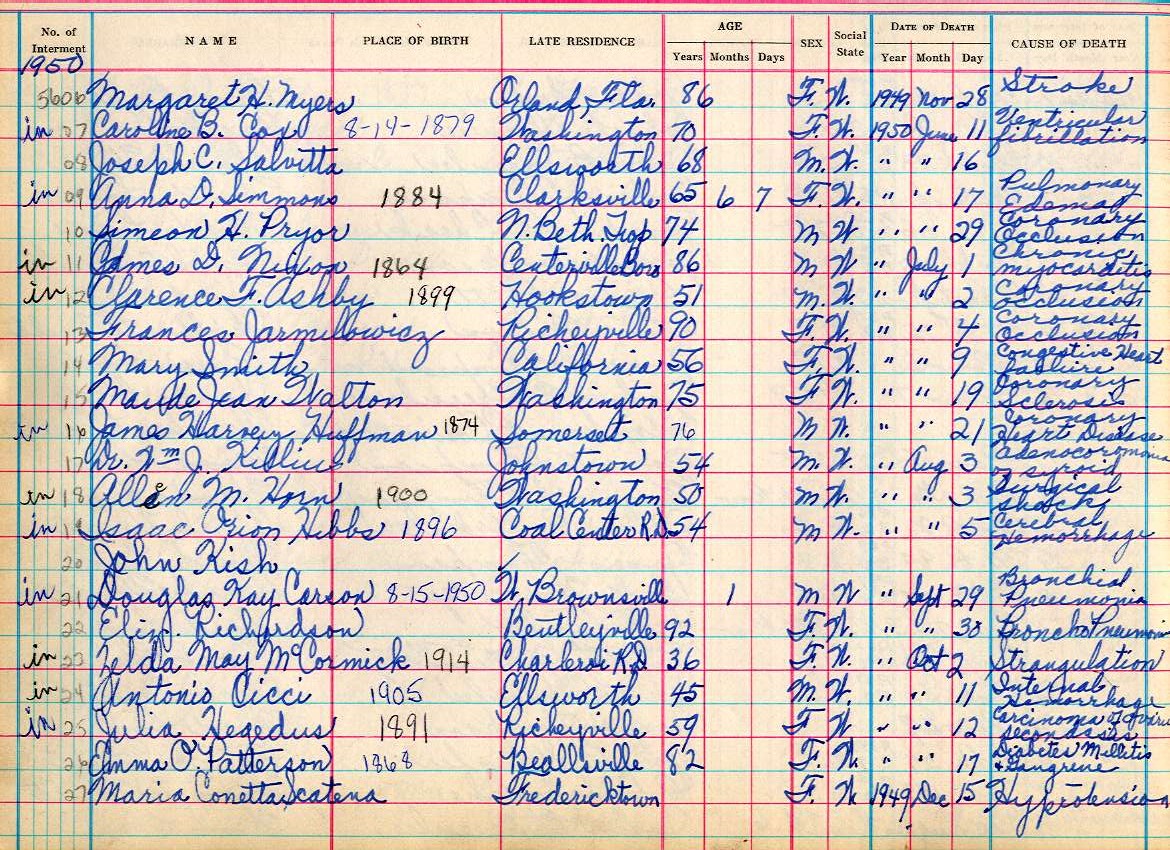 No. of Interment NAME PLACE OF BIRTH LATE RESIDENCE AGE Years Months Days SEX Social State DATE OF DEATH Year Month Day CAUSE OF DEATH
1950
5606 Margaret H. Myers Orland, Fla. 86 F. W. 1949 Nov 28 Stroke
in 07 Caroline B. Cox 8-14-1879 Washington 70 F. W. 1950 June 11 Ventricular fibrillation
08 Joseph C. Salvitta Ellsworth 68 M. W. " " 16
in 09 Anna D. Simmons 1884 Clarksville 65 6 7 F. W. " " 17 Pulmonary Edemag
10 Simeon H. Pryor N. Beth. Twp 74 M W " " 29 Coronary Occlusion
in 11 James D. Nixon 1864 Centerville Boro 86 M W " July 1 Chronic myocarditis
in 12 Clarence F. Ashby 1899 Hookstown 51 M. W. " " 2 Coronary occlusion
13 Frances Jarmilowicz Richeyville 90 F. W. " " 4 Coronary Occlusion
14 Mary Smith California 56 F. W. " " 9 Congestive Heart Failure
15 Maude Jean Walton Washington 75 F W. " " 19 Coronary Sclerosis
in 16 James Harvey Huffman 1874 Somerset 76 M W. " " 21 Coronary Heart Disease
17 Dr. Wm J. Johnstown 54 M. W. " Aug 3
in 18 Allen M. Horn 1900 Washington 50 M W. " " 3 Surgical shock
in 19 Isaac Orion Hibbs 1896 Coal Center R.D. 54 M W. " " 5 Cerebral Hemorrhage
20 John Kish ✓
in 21 Douglas Kay Carson 8-15-1950 W. Brownsville 1 M W " Sept 29 Bronchial Pneumonia
22 Eliz. Richardson Bentleyville 92 F. W. " " 30 Broncho Pneumonia
in 23 Zelda May McCormick 1914 Charleroi R.D 36 F. W. " Oct 2 Strangulation
in 24 Antonio Cicci 1905 Ellsworth 45 M. W. " " 11 Internal Hemorrhage
in 25 Julia Hegedus 1891 Richeyville 59 F W " " 12 Carcinoma of
26 Emma O. Patterson 1868 Beallsville 82 F. W. " " 17 Diabetes Mellitis & Gangrene
27 Maria Conetta Scatena Fredericktown F. W 1949 Dec 15 Hyptotension